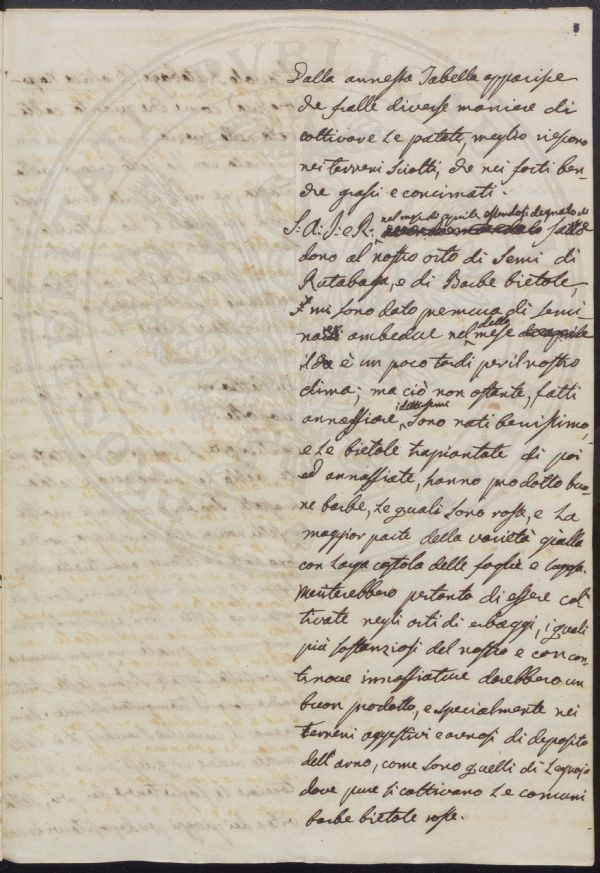 Dalla annessa Tabella apparisce
che fralle diverse maniere di
coltivare le patate, meglio riescono
nei terreni sciolti, che nei forti ben-
che grassi e concimati.
nel mese di aprile essendosi degnato di
S: A: I: e R: far
dono al nostro orto di Semi di
Rutabaga, e di Barbe bietole,
mi sono dato premura di semi-
nare ambedue nel detto mese
il che è un poco tardi per il nostro
clima; ma ciò non ostante, fatti
annaffiare, i detti semi sono nati benissimo,
e le bietole trapiantate di poi
ed annaffiate, hanno prodotto buo-
ne barbe, le quali sono rosse, e la
maggior parte della varietà gialla
con larga costola delle foglie e lunga.
Meriterebbero pertanto di essere col-
tivate negli orti di erbaggi, i quali
più sostanziosi del nostro e con con-
tinove innaffiature darebbero un
buon prodotto, e specialmente nei
terreni aggestivi e arenosi di deposito
dell'arno, come sono quelli di Legnaja
dove pure si coltivano le comuni
barbe bietole rosse.